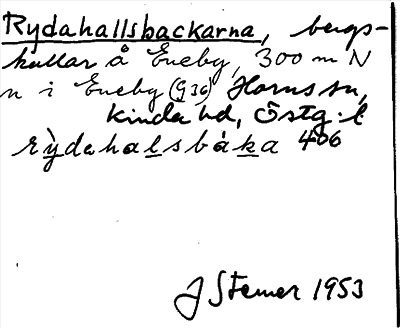 Rydahallsbackarna, bergs-
kullar å Eneby, 300 m N
n i Eneby (g 36) Horns sn,
Kinda hd, Östg. l
rỳdahalsbàka 406
J Stemer 1953